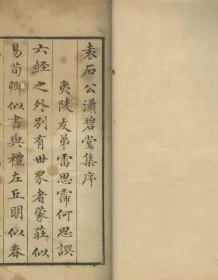 袁石公瀟碧堂集序
夷陵友弟雷思霈何思譔
六經之外別有世界者蒙莊似
易荀卿似書與禮左丘明似春